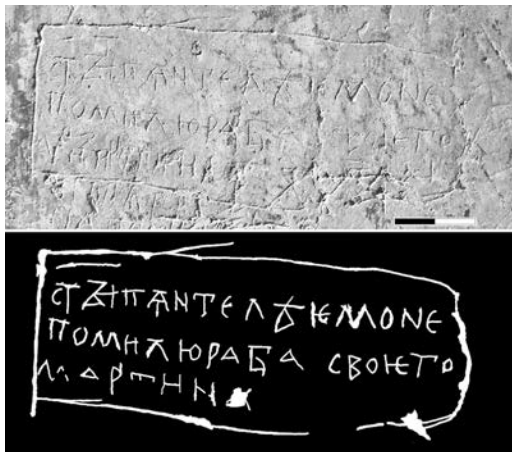 СТЪІПАNТЕЛѢѤМОNЕ
ПОМИЛЮРАБА СВОѤГО
МАРТИNА